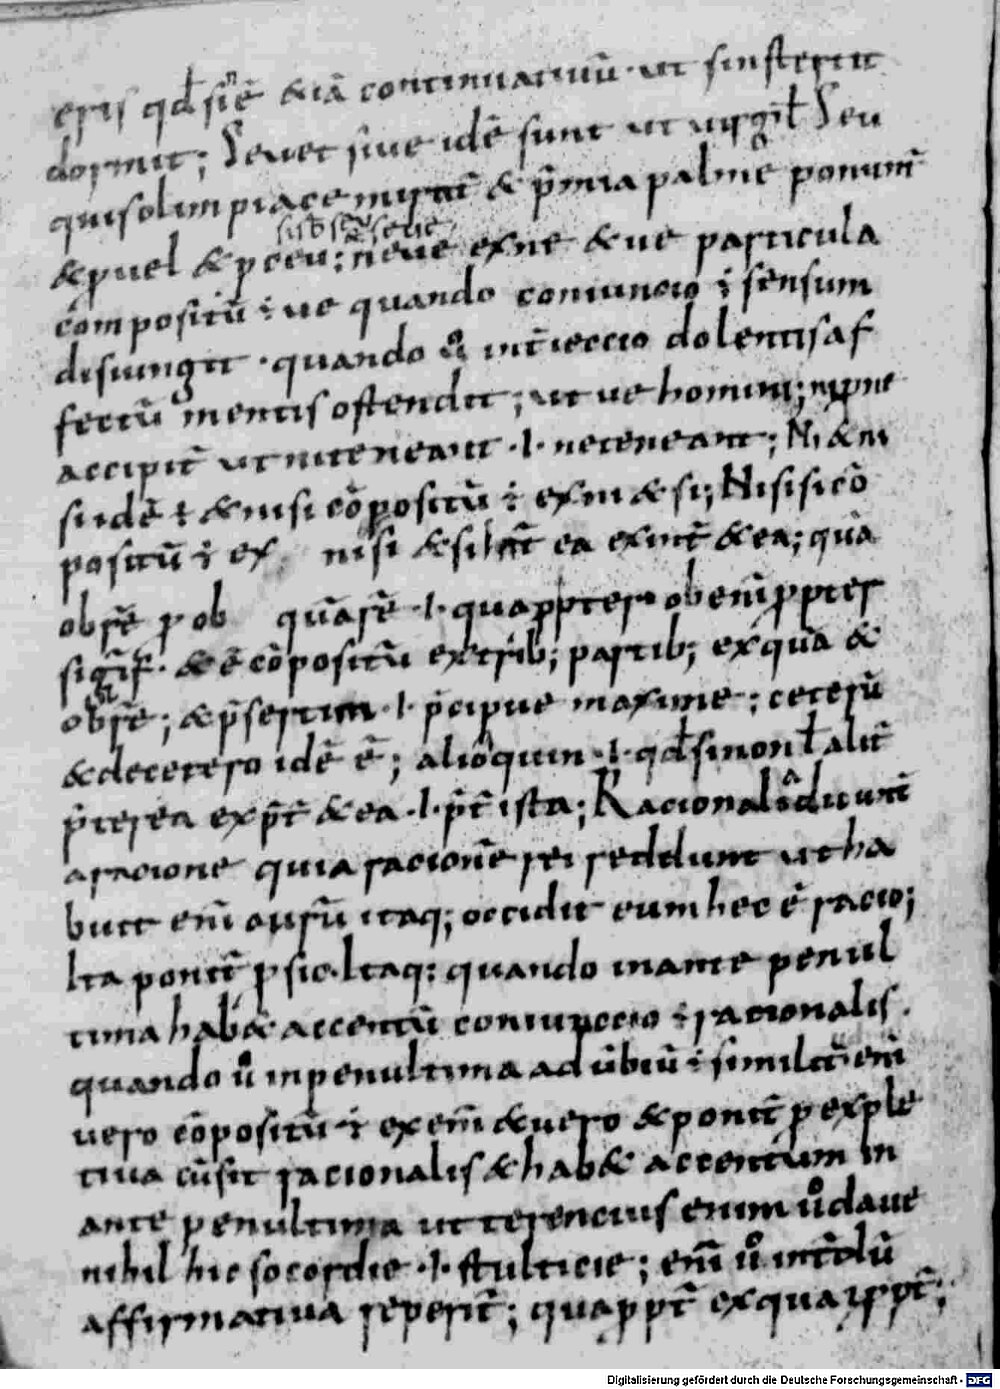 eris qđ siē &iā continuatiuū · ut sinsterrit
dormit; Seuet siue idē sunt ut uirgił Seu
quisolimpiace mirat̄ & p̄mia palme ponunt̄
sub scr̄ seue
&puel &pceu; neue exne &ue particula
compositū ÷ ue quando coniunccio ÷ sensum
disiungit · quando ů int̄ieccio dolentisaf
fectū mentis ostendit; ut ue homini; ni pne
accipit̄ ut niteneant ·l· neteneant; Ni &ni
si idē ÷ &nisi cōpositū ÷ exni &si; Nisi si cō
positū ÷ ex nisi &si ea exint̄ &ea; quā
obrē p ob quārē ·l· quappter ob enī ppter
sigīf · &ē cōpositū extrib; partib; exquā &
obrē; &p̄sertim ·l· p̄cipue maxime; ceterū
&decetero idē ē; alioquin ·l· qđsinon ł alit̄
p̄terea exp̄t &ea ·l· p̄t ista; Racionales dicunt̄
aracione quia racionē rei reddunt ut ha
buit enī aurū itaq; occidit eum hec ē racio;
Ita ponit̄ p sic · Itaq: quando inante penul
tima hab& accentū coniunccio ÷ racionalis ·
quando ů inpenultima aduerbiū ÷ similit̄ enī
uero cōpositū ÷ ex enī &uero &ponit̄ p exple
tiua cūsit racionalis &hab& accentum in
ante penultima ut terencius enim ůo daue
nihil hic socordie ·l· stulticie; enī ů int̄dū
affirmatiua reperit̄; quappt̄ exqua &ppt̄;